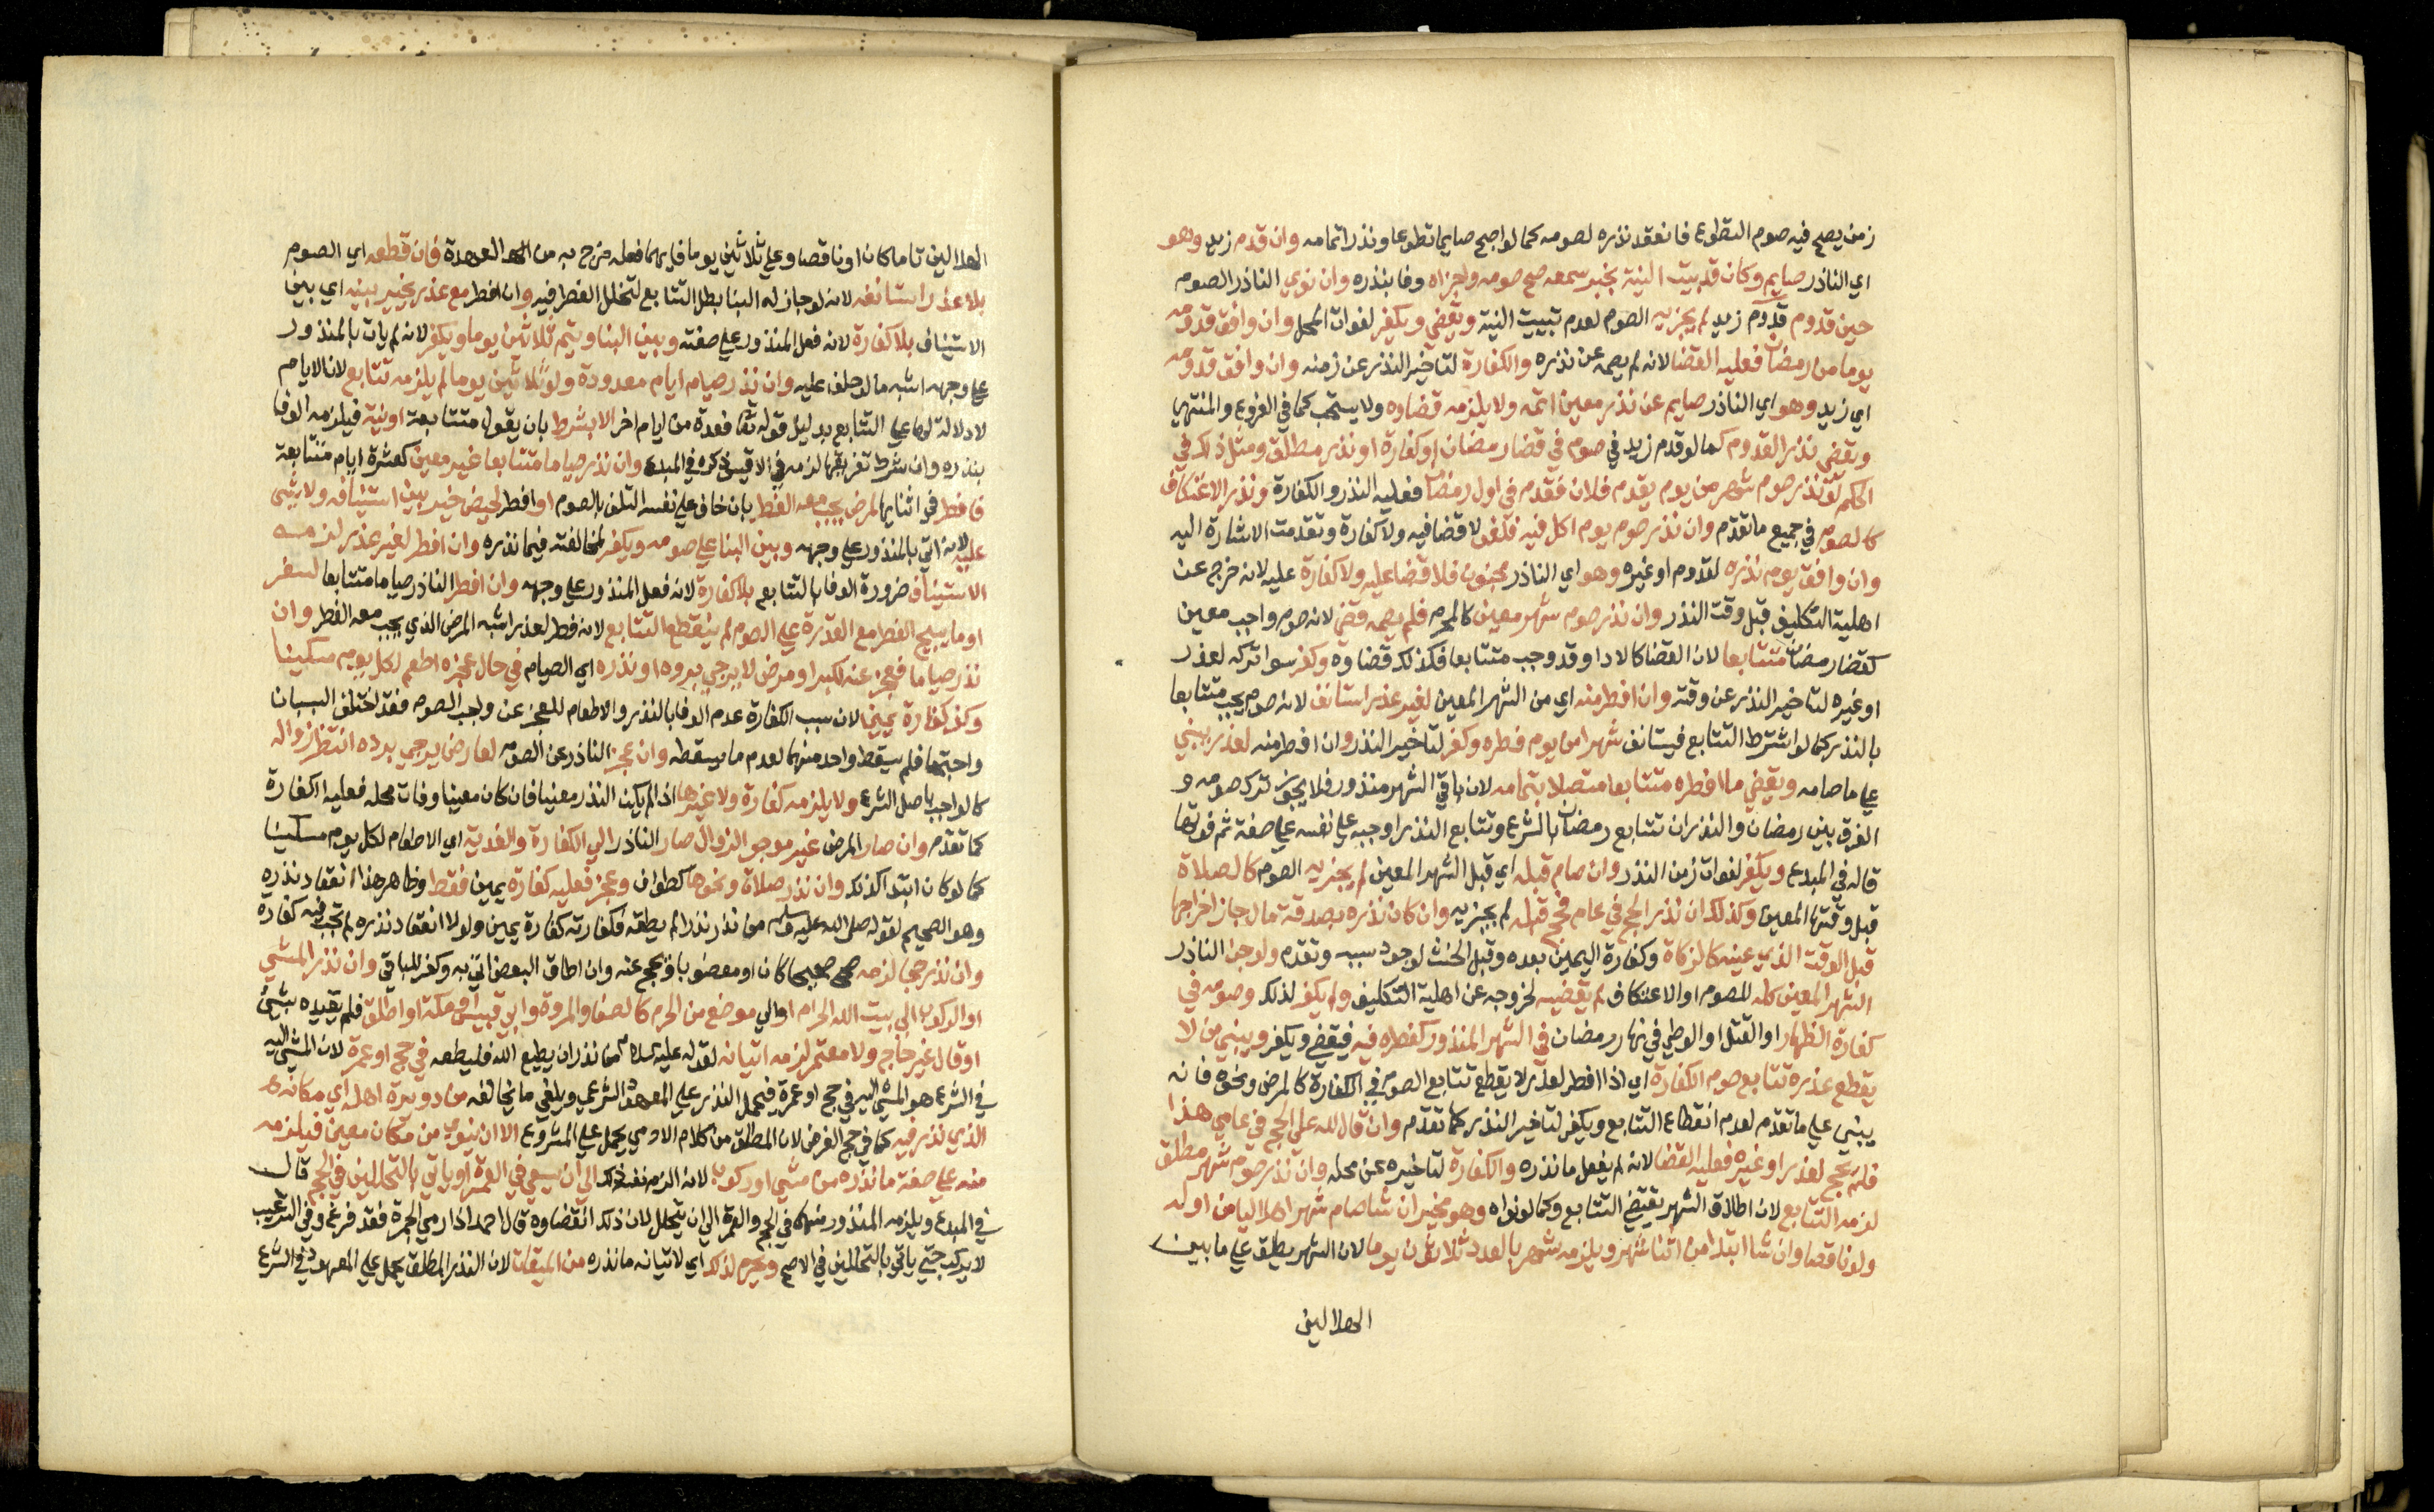 زمن يصح فيه صوم التطوع فانعقد نذره لصومه كما لو اصبح صايما تطوعا ونذر اتمامه وان قدم زيد وهو
اي الناذر صايم وكان قد بيت النية بخبر سمعه صح صومه واجزاه وفا بنذره وان نوي الناذر الصوم
حين قدوم قدوم زيد لم يجزيه الصوم لعدم تبييت النية ويقضي ويكفر لفوات المحل وان وافق قدومه
يوما من رمضان فعليه القضا لانه لم يصمه عن نذره والكفارة لتاخير النذر عن زمنه وان وافق قدومه
اي زيد وهو اي الناذر صايم عن نذر معين اتمه ولا يلزمه قضاوه ولا يستحب كما في الفروع والمنتهي
ويقضي نذر القدوم كما لو قدم زيد في صوم في قضا رمضان او كفارة او نذر مطلق ومثل ذلك في
الحكم لو نذر صوم شهر من يوم يقدم فلان فقدم في اول رمضان فعليه النذر والكفارة ونذر الاعتكاف
كالصوم في جميع ما تقدم وان نذر صوم يوم اكل فيه فلغو لا قضا فيه ولا كفارة وتقدمت الاشارة اليه
وان وافق يوم نذره لقدوم او غيره وهو اي الناذر مجنون فلا قضا عليه ولا كفارة عليه لانه خرج عن
اهلية التكليف قبل وقت النذر وان نذر صوم شهر معين كالمحرم فلم يصمه قضي لانه صوم واجب معين
كقضا رمضان متتابعا لان القضا كالادا وقد وجب متتابعا فكذلك قضاوه وكفر سوا تركه لعذر
او غيره لتاخير النذر عن وقته وان افطر منه اي من الشهر المعين لغير عذر استانف لانه صوم يجب متتابعا
بالنذر كما لو اشترط التتابع فيستانف شهرا من يوم فطره وكفر لتاخير النذر وان افطر منه لعذر يبني
علي ما صامه ويقضي ما افطره متتابعا متصلا بتمامه لان باقي الشهر منذور فلا يجوز ترك صومه و
الفرق بين رمضان والنذر ان تتابع رمضان بالشرع وتتابع النذر اوجبه علي نفسه علي صفة ثم فوتها
قاله في المبدع ويكفر لفوات زمن النذر وان صام قبله اي قبل الشهر المعين لم يجزيه الصوم كالصلاة
قبل وقتها المعين وكذلك ان نذر الحج في عام فحج قبله لم يجزيه وان كان نذره بصدقة مال جاز اخراجها
قبل الوقت الذي عينه كالزكاة وكفارة اليمين بعده وقبل الحنث لوجود سببه وتقدم ولو جن الناذر
الشهر المعين كله للصوم او الاعتكاف لم يقضيه لخروجه عن اهلية التكليف ولم يكفر لذلك وصومه في
كفارة الظهار او القتل او الوطي في نهار رمضان في الشهر المنذور كفطره فيه فيقضي ويكفر ويبني من لا
يقطع عذره تتابع صوم الكفارة اي اذا افطر لعذر لا يقطع تتابع الصوم في الكفارة كالمرض ونحوه فانه
يبني علي ما تقدم لعدم انقطاع التتابع ويكفر لتاخير النذر كما تقدم وان قال لله علي الحج في عامي هذا
فلم يحج لعذر او غيره فعليه القضا لانه لم يفعل ما نذره والكفارة لتاخيره عن محله وان نذر صوم شهر مطلق
لزمه التتابع لان اطلاق الشهر يقتضي التتابع وكما لو نواه وهو مخير ان شا صام شهرا هلاليا من اوله
ولو ناقصا وان شا ابتدا من اثنا شهر ويلزمه شهر بالعدد ثلاثون يوما لان الشهر يطلق علي ما بين
الهلالين
الهلالين تاما كان او ناقصا وعلي ثلاثين يوما فايهما فعله خرج به من العهدة فان قطعه اي الصوم
بلا عذر استانفه لانه لو جاز له البنا بطل التتابع لتخلل الفطر فيه وان افطر مع عذر يخير بينه اي بين
الاستيناف بلا كفارة لانه فعل المنذور علي صفته وبين البنا ويتم ثلاثين يوما ويكفر لانه لم يات بالمنذور
علي وجهه اشبه ما لو حلف عليه وان نذر صيام ايام معدودة ولو ثلاثين يوما لم يلزمه تتابع لان الايام
لا دلالة لها علي التتابع بدليل قوله تعا فعدة من ايام اخر الا بشرط بان يقول متتابعة او نية فيلزمه الوفا
بنذره وان شرط تفريقها لزمه في الاقيس ذكره في المبدع وان نذر صياما متتابعا غير معين كعشرة ايام متتابعة
فافطر في اثنايها لمرض يجب معه الفطر بان خاف علي نفسه التلف بالصوم او افطر لحيض خير بين استينافه ولا شي
عليه لانه اتي بالمنذور علي وجهه وبين البنا علي صومه ويكفر لمخالفته فيما نذره وان افطر لغير عذر لزمه
الاستيناف ضرورة الوفا بالتتابع بلا كفارة لانه فعل المنذور علي وجهه وان افطر الناذر صياما متتابعا لسفر
او ما يبيح الفطر مع القدرة علي الصوم لم ينقطع التتابع لانه فطر لعذر اشبه المرض الذي يجب معه الفطر وان
نذر صياما فعجز عنه لكبر او مرض لا يرجي بروه او نذره اي الصيام في حال عجزه اطعم لكل يوم مسكينا
وكفر كفارة يمين لان سبب الكفارة عدم الوفا بالنذر والاطعام للعجز عن واجب الصوم فقد اختلف السببان
واجتمعا فلم يسقط واحد منهما لعدم ما يسقطه وان عجز الناذر عن الصوم لعارض يرجي برده انتظر زواله
كالواجب باصل الشرع ولا يلزمه كفارة ولا غيرها اذا لم يكن النذر معينا فان كان معينا وفات محله فعليه الكفارة
كما تقدم وان صار المرض غير مرجو الزوال صار الناذر الي الكفارة والفدية اي الاطعام لكل يوم مسكينا
كما لو كان ابتدا كذلك وان نذر صلاة ونحوها كطواف وعجز فعليه كفارة يمين فقط وظاهر هذا انعقاد نذره
وهو الصحيح لقوله صلي الله عليه وسلم من نذر نذرا لم يطقه فكفارته كفارة يمين ولولا انعقاد نذره لم تجب فيه كفارة
وان نذر حجا لزمه صحيحا كان او معضوبا فيحج عنه وان اطاق البعض اتي به وكفر للباقي وان نذر المشي
او الركوب الي بيت الله الحرام او الي موضع من الحرم كالصفا والمروة وابي قبيس او مكة او اطلق فلم يقيده بشئ
او قال غير حاج ولا معتمر لزمه اتيانه لقوله عليه السلام من نذر ان يطيع الله فليطعه في حج او عمرة لان المشي اليه
في الشرع هو المشي اليه في حج او عمرة فيحمل النذر علي المعهود الشرعي ويلغي ما يخالفه من دويرة اهله اي مكانه
الذي نذر فيه كما في حج الفرض لان المطلق من كلام الادمي يحمل علي المشروع الا ان ينوي من مكان معين فيلزمه
منه علي صفة ما نذره من مشي او ركوب لانه الزم نفسه ذلك الي ان يسعي في العمرة او ياتي بالتحللين في الحج قال
في المبدع ويلزمه المنذور منهما في الحج والعمرة الي ان يتحلل لان ذلك انقضاوه قال احمد اذا رمي الجمرة فقد فرغ وفي الترغيب
لا يركب حتي ياتي بالتحللين في الاصح ويحرم لذلك اي لاتيانه ما نذره من الميقات لان النذر المطلق يحمل علي المعهود في الشرع